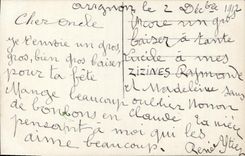 avignon le 2 Décbre 1912
Cher oncle
je t'envoie un gros,
gros, bien gros baiser
pour ta fête
Mange beaucoup
de bonbons en
pensant à moi qui les
aime beaucoup.
Encore un gros
baiser à tante
Lucile à mes
ZIZINES Raymonde
et Madeleine sans
oublier Nonon
Claude ta nièce
René